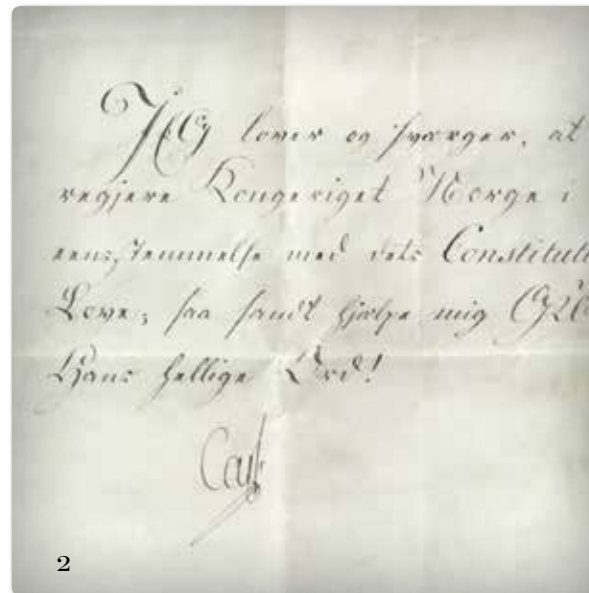 JEG lover og sværger, at
regjere Kongeriget Norge i
eensstemmelse med dets Constituti
Love; saa sandt hjelpe mig GUD
Hans hellige Ord!
Carl
2